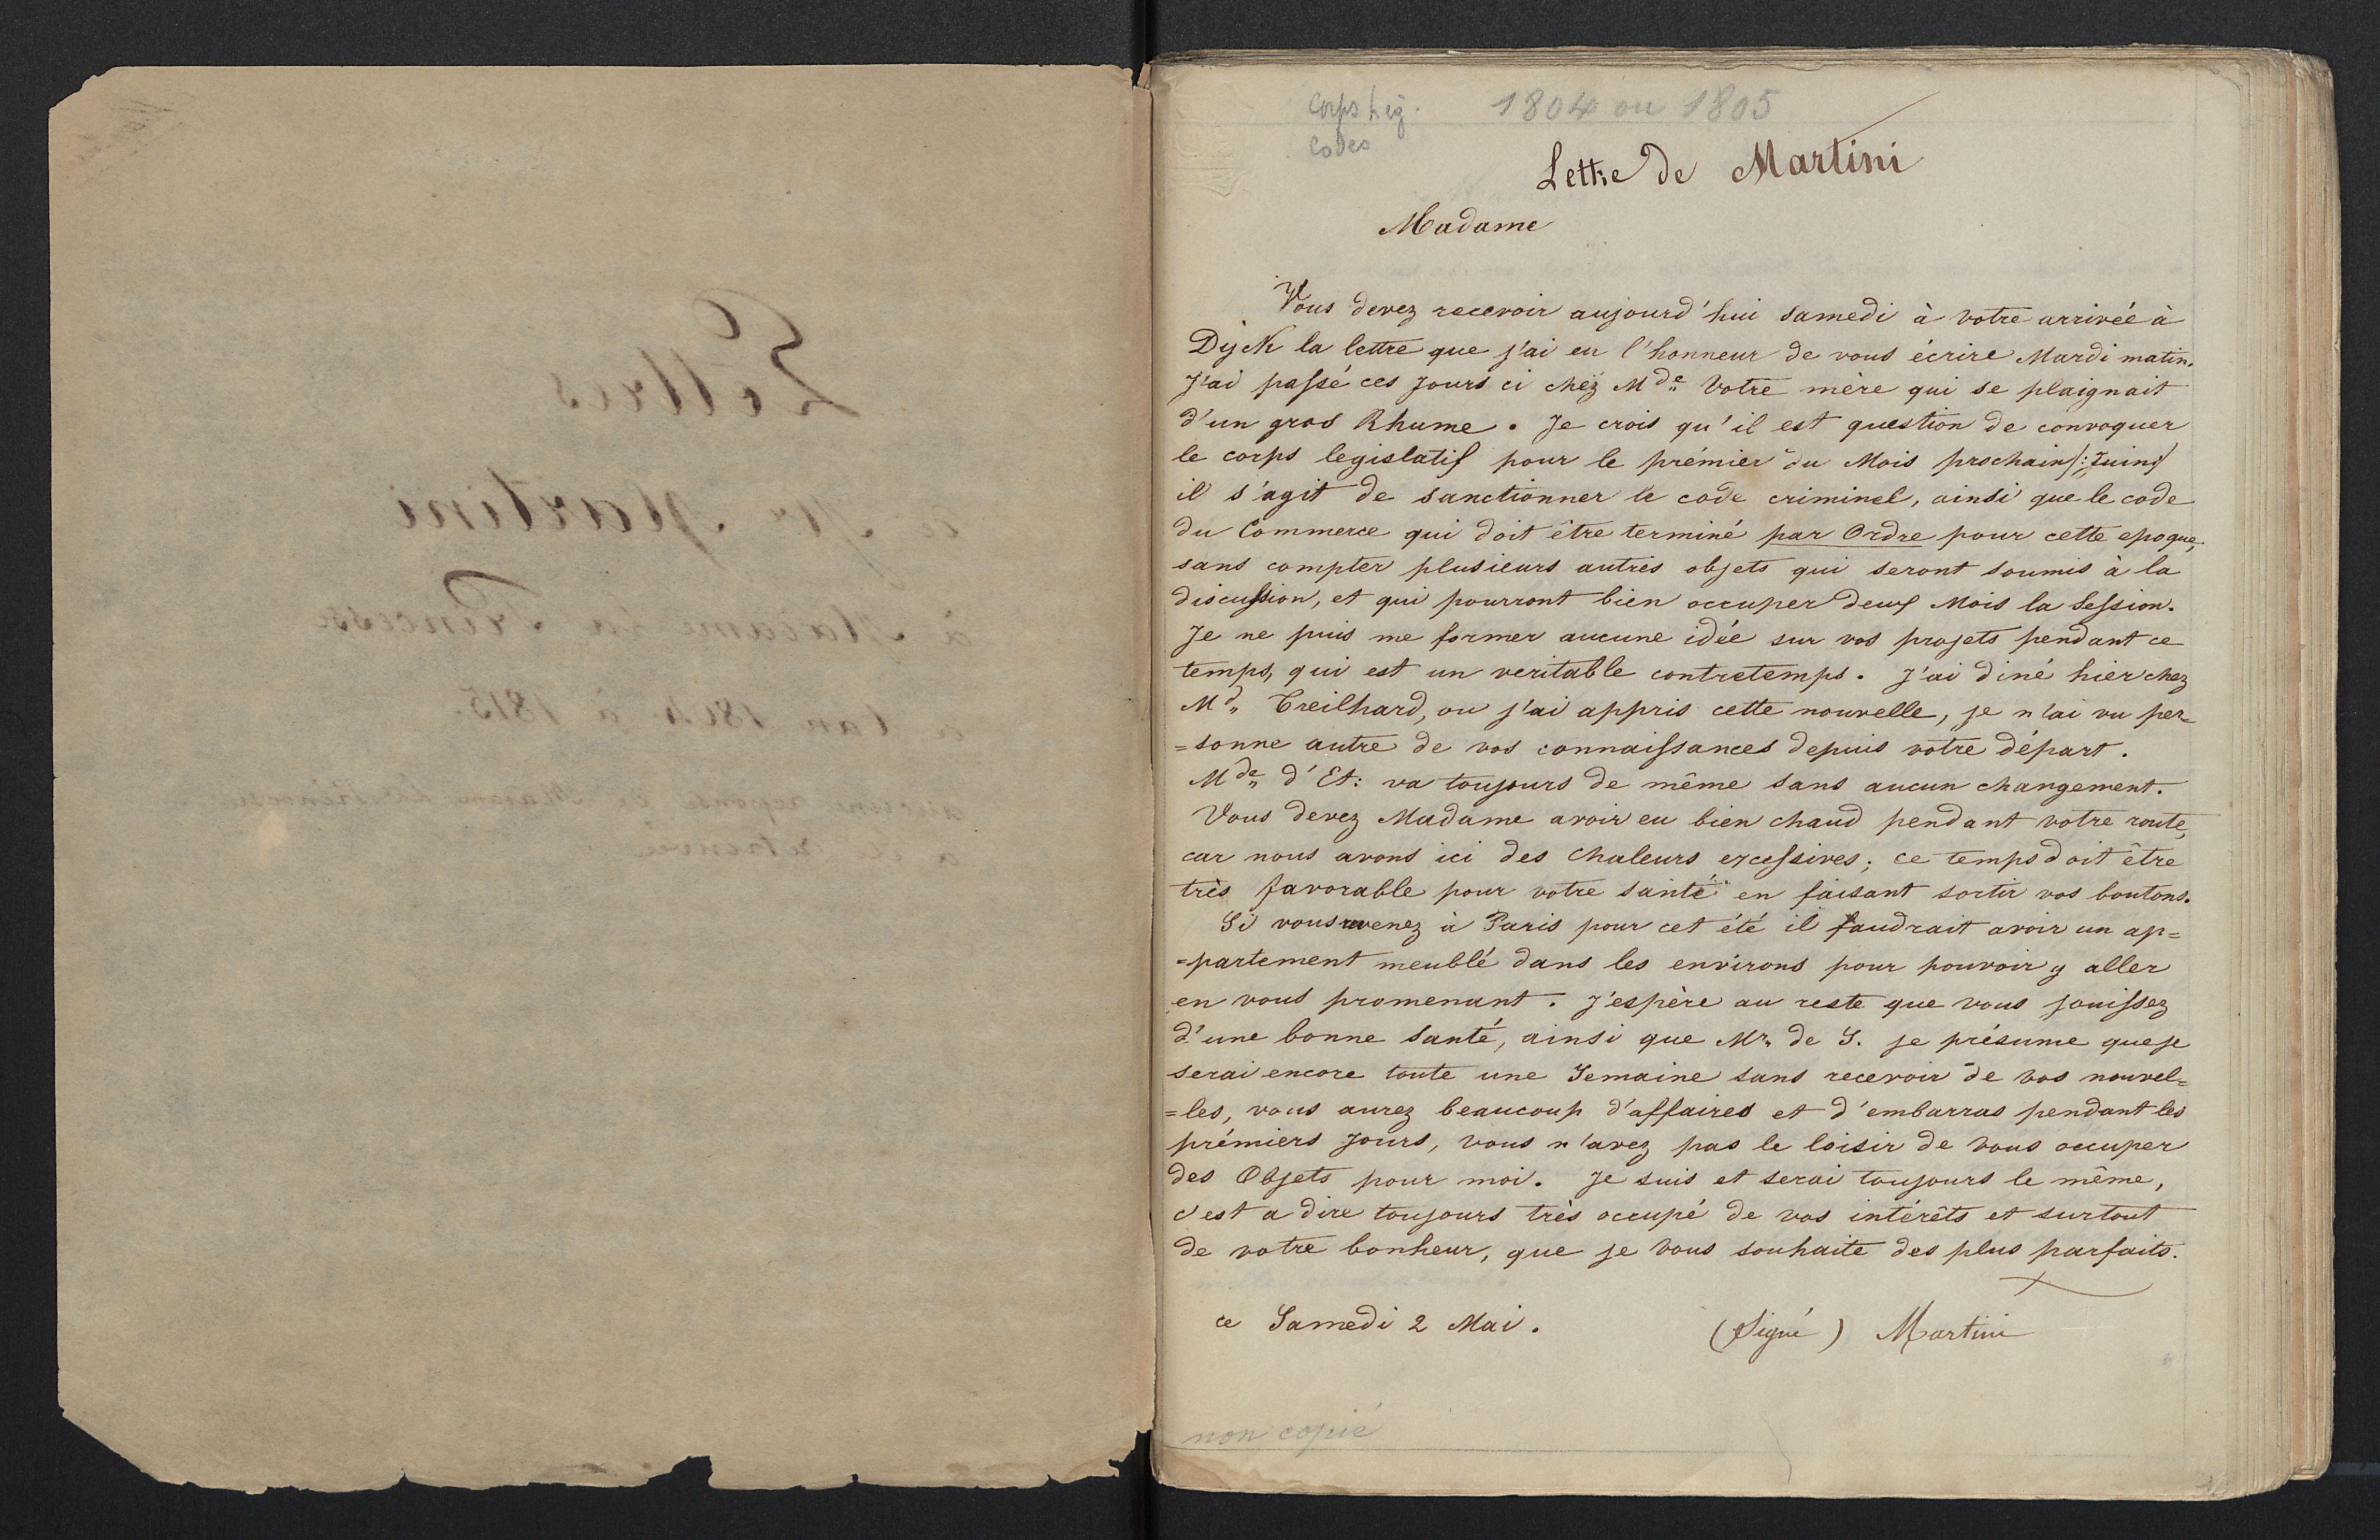 Lettres
de Mr. Martini
à Madame la Princesse
de l'an 1804 à 1815.
aucune réponse de Madame la Princesse
a été retrouvée
Corps Leg. 1804 ou 1805
Codes
Lettre de Martini
Madame
Vous devez recevoir aujourd'hui samedi à votre arrivée à
Dyck la lettre que j'ai eu l'honneur de vous écrire Mardi matin.
J'ai passé ces jours ci chez Mde. Votre mère qui se plaignait
d'un gros Rhume. Je crois qu'il est question de convoquer
le corps legislatif pour le prémier du Mois prochain /: Juin:/
il s'agit de sanctionner le code criminel, ainsi que le code
du Commerce qui doit être terminé par Ordre pour cette epoque,
sans compter plusieurs autres objets qui seront soumis à la
discussion, et qui pourront bien occuper deux Mois la Session.
Je ne puis me former aucune idée sur vos projets pendant ce
temps, qui est un veritable contretemps. J'ai diné hier chez
Md. Treilhard, ou j'ai appris cette nouvelle, je n'ai vu per=
=sonne autre de vos connaissances depuis votre départ.
Mde. d'Et: va toujours de même sans aucun changement.
Vous devez Madame avoir eu bien chaud pendant votre route,
car nous avons ici des chaleurs excessives; ce temps doit être
très favorable pour votre santé en faisant sortir vos boutons.
Si vous revenez à Paris pour cet été il faudrait avoir un ap=
=partement meublé dans les environs pour pouvoir y aller
en vous promenant. J'espère au reste que vous jouissez
d'une bonne santé, ainsi que Mr. de S. je présume que je
serai encore toute une Semaine sans recevoir de vos nouvel=
=les, vous aurez beaucoup d'affaires et d'embarras pendant les
prémiers jours, vous n'avez pas le loisir de vous occuper
des Objets pour moi. Je suis et serai toujours le même,
c'est a dire toujours très occupé de vos intérêts et surtout
de votre bonheur, que je vous souhaite des plus parfaits.
ce Samedi 2 Mai. (Signé) Martini
non copié